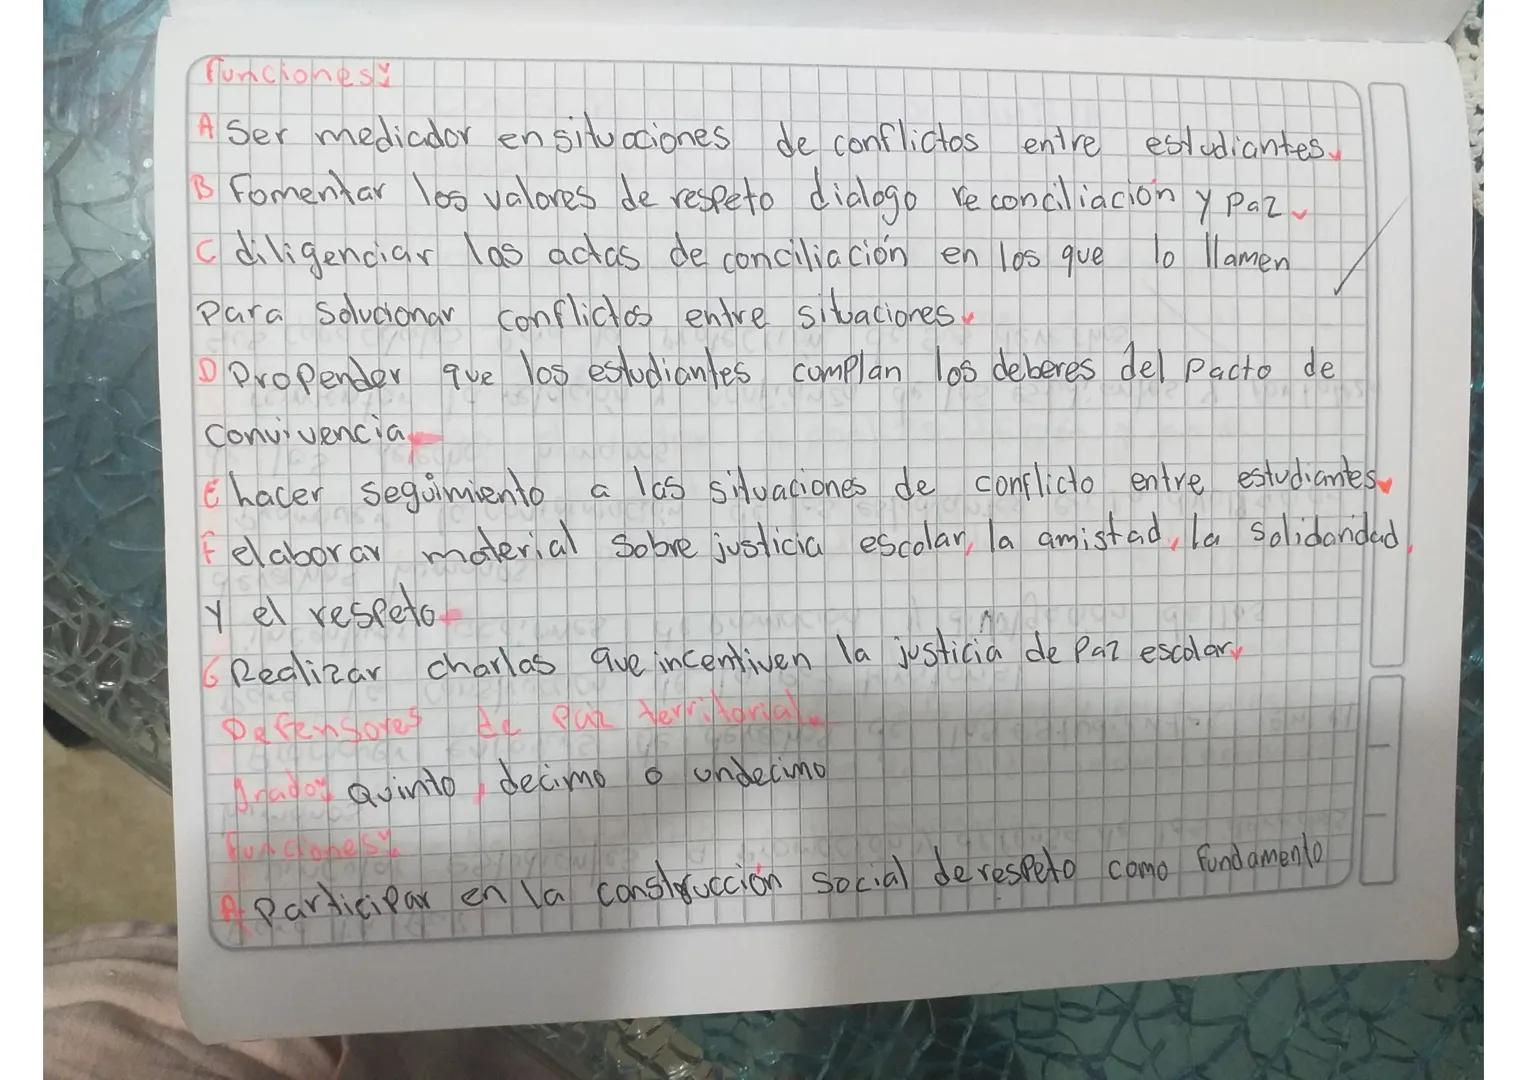 Funciones:
A Ser mediador en situaciones de conflictos entre estudiantes.
B Fomentar los valores de respeto dialogo reconciliación y Paz.
C diligenciar las actas de conciliación en los que lo llamen
Para Solucionar conflictos entre situaciones.
D Propender que los estudiantes complan los deberes del Pacto de
Convivencia.
E hacer seguimiento a las situaciones de conflicto entre estudiantes.
F elaborar material Sobre justicia escolar, la amistad, la Solidaridad,
y el respeto.
G Realizar charlas que incentiven la justicia de Paz escolar.
Defensores de Paz territorial.
Grados: quinto, decimo o undecimo
Funciones:
A Participar en la construcción Social de respeto como fundamento